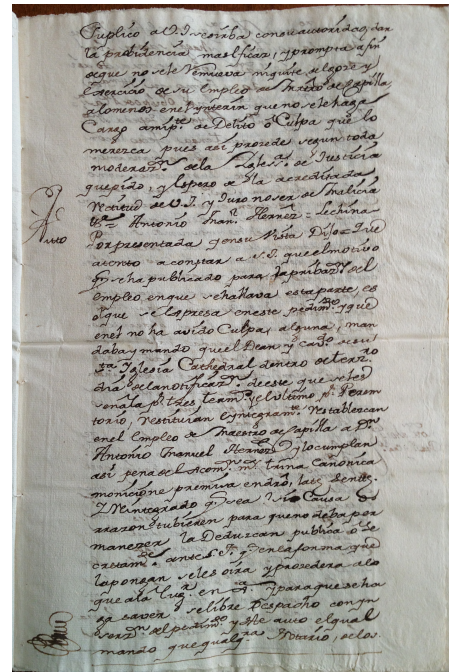 Suplico a V.S. se sirba con su autoridad, dar
la probidencia mas eficaz, y prompta a fin
de que no se le remueva ni quite el goze y
Exercicio de su Empleo de Mrō de Capilla
alomenos en el ynterin que no se le haga
Cargo de Delito ò Culpa que lo
merezca pues asi procede segun toda
de la de Justicia
que pido, y espero de la acreditada
rectitud de V.S. y Juro no ser de malicia
Antonio Man.l Hernez = Lechina =
Auto
Por presentada y en su Vista Dijo = Que
atento a constar a S.S. que el motivo
que se ha publicado para la pribaz.n del
empleo en que se hallava esta parte, es
el que se expresa en este pedim.to y que
en el no ha avido Culpa, alguna, man
daba y mando que el Dean y Cav.do de su
S.ta Yglesia Cathedral dentro de tercero
dia de la notificaz.n de este que se les
senala p.r tres term.s y el ultimo p.r Perem
torio, restituian e yntegram.te restablescan
en el Empleo de Maestro de Capilla a D.n
Antonio Manuel Hernez y lo cumplan
asi pena de Excom.n m.r trina Canonica
monicione premisa
Y Reintegrado que sea si Causa o
rrazon tubieren para que no deba per
manezer la Deduzcan publica ò se
cretam.te ante S.S. que en la forma que
la pongan se les oira y procedera a lo
que aia lugr. en y para que se ha
ga saver se libre Despacho con yn
serz.n del pedim.to y de este auto el qual
mando que qualq.ra Notario, de los